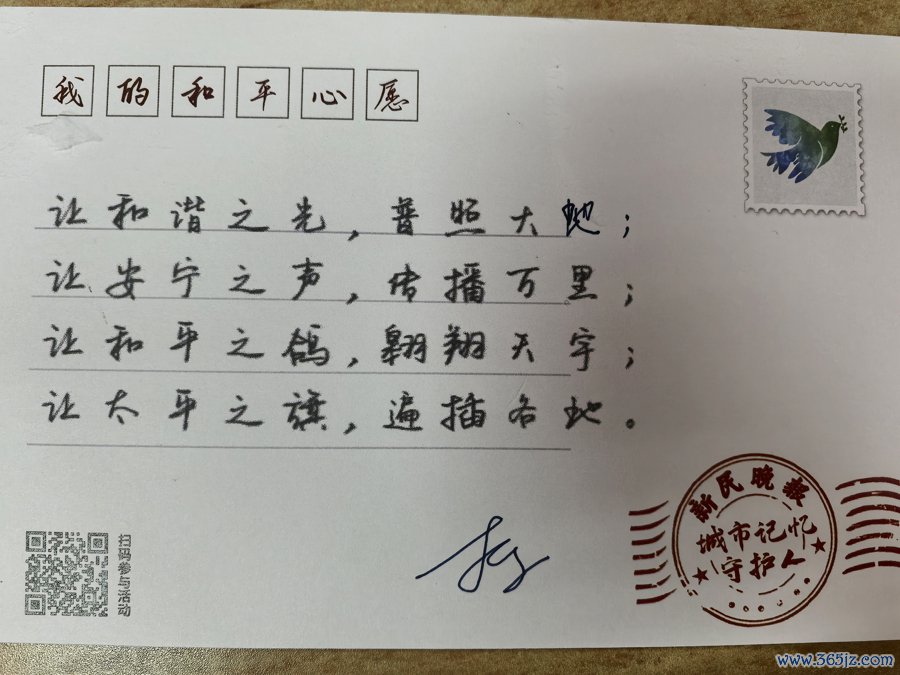 我的和平心愿
让和谐之光，普照大地；
让安宁之声，传播万里；
让和平之鸽，翱翔天宇；
让太平之旗，遍插各地。
扫码参与活动
新民晚报
城市记忆
守护人
www.365jz.com